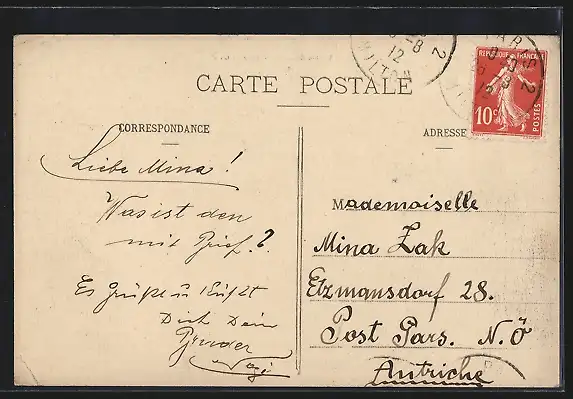 CARTE POSTALE
CORRESPONDANCE
Liebe Mina!
Was ist den
mit Grief?
Es Grüßt u Küßt
Dich Dein
Bruder
ADRESSE
Mademoiselle
Mina Zak
Etzmansdorf 28.
Post Gars. N.Ö
Autriche
REPUBLIQUE FRANÇAISE
10c
POSTES
PARIS
MILTON
8
12
2